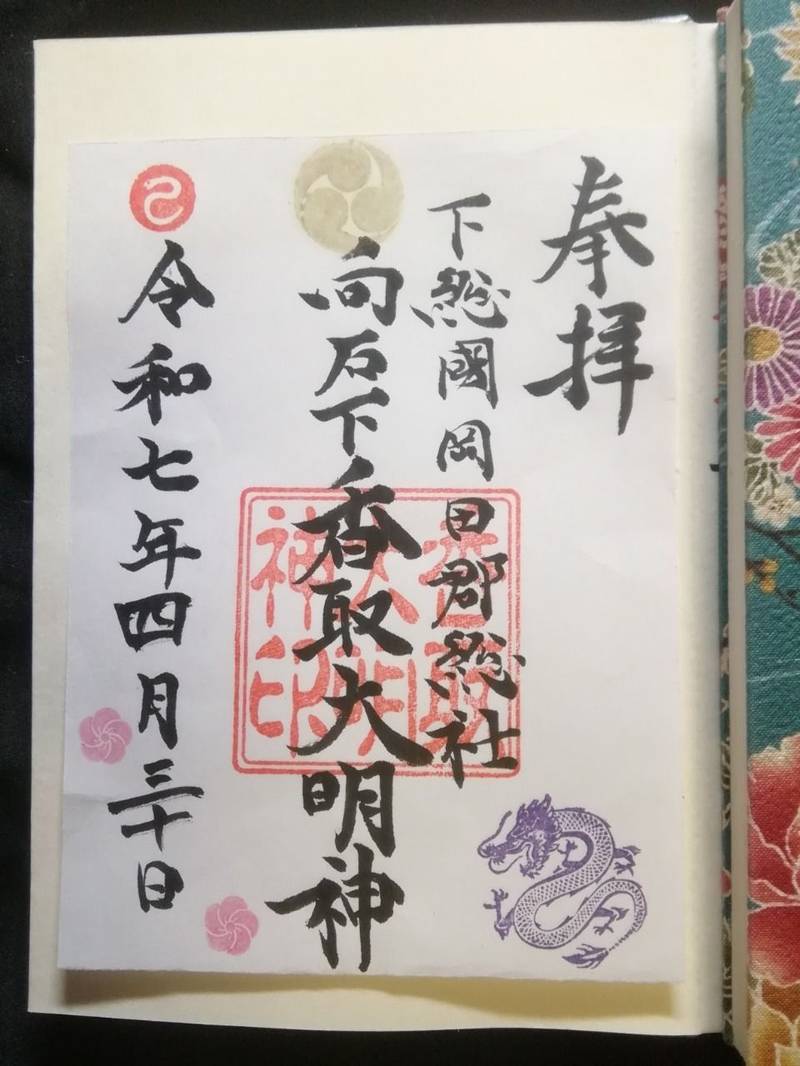 奉拝
下総國岡田郡総社
向石下香取大明神
香取大明神印
令和七年四月三十日